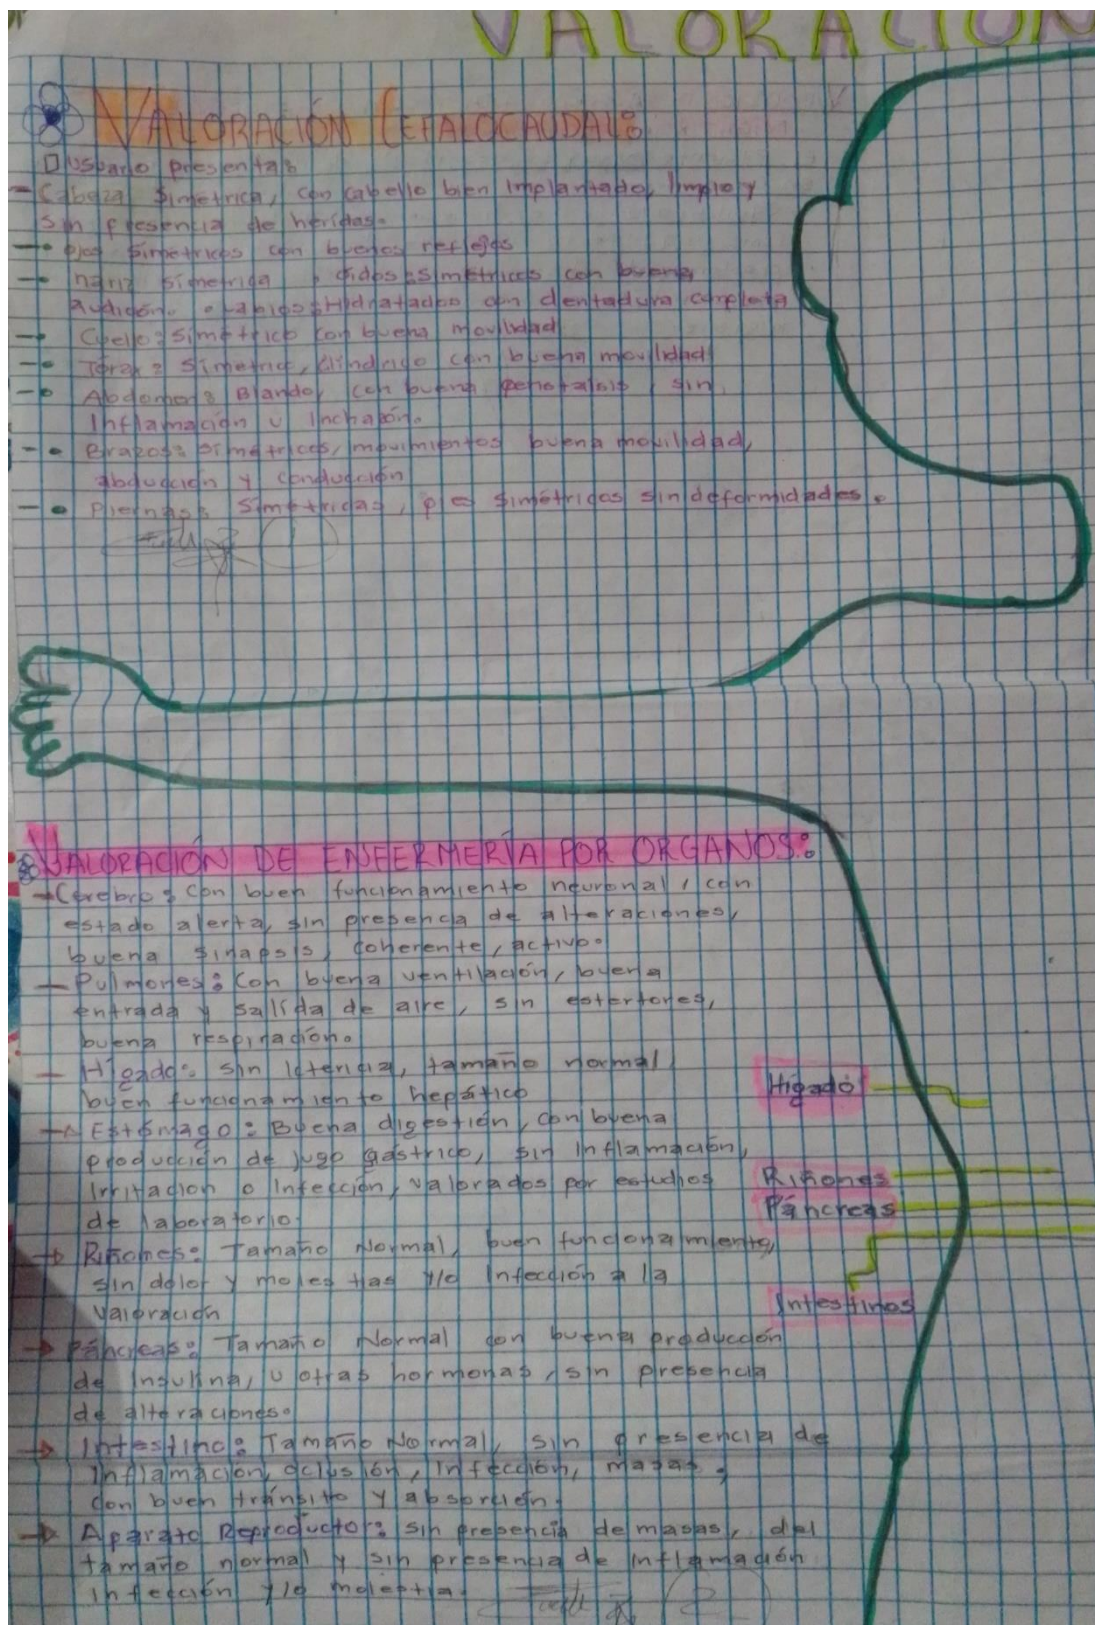 VALORACION
VALORACIÓN CEFALOCAUDAL:
Usuario presenta:
- Cabeza simétrica, con cabello bien implantado, limpio y
sin presencia de heridas.
- ojos simétricos con buenos reflejos
- nariz simetrica, oidos: simétricos con buena
audición. Labios: Hidratados con dentadura completa
- Cuello: simétrico con buena movilidad
- Tórax: simetrico, cilindrico con buena movilidad
- Abdomen: Blando, con buena peristalsis, sin
Inflamación u Inchazón.
- Brazos: simétricos, movimientos buena movilidad,
abducción y conducción
- Piernas: Simétricas, pies simétricos sin deformidades.
VALORACIÓN DE ENFERMERÍA POR ORGANOS:
- Cerebro: con buen funcionamiento neuronal, con
estado alerta, sin presencia de alteraciones,
buena sinapsis, coherente, activo.
- Pulmones: Con buena ventilación, buena
entrada y salida de aire, sin estertores,
buena respiración.
- Hígado: sin Ictericia, tamaño normal
buen funcionamiento hepático
Hígado
- Estómago: Buena digestión, con buena
producción de jugo gástrico, sin Inflamación,
Irritación o Infección, valorados por estudios
de laboratorio.
Riñones
Páncreas
- Riñones: Tamaño Normal, buen funcionamiento,
sin dolor y molestias y/o Infección a la
valoración
Intestinos
- Páncreas: Tamaño Normal con buena producción
de Insulina, u otras hormonas, sin presencia
de alteraciones.
- Intestino: Tamaño Normal, sin presencia de
Inflamación, oclusión, Infección, masas,
con buen tránsito y absorción.
- Aparato Reproductor: sin presencia de masas, del
tamaño normal y sin presencia de Inflamación
Infección y/o molestia.